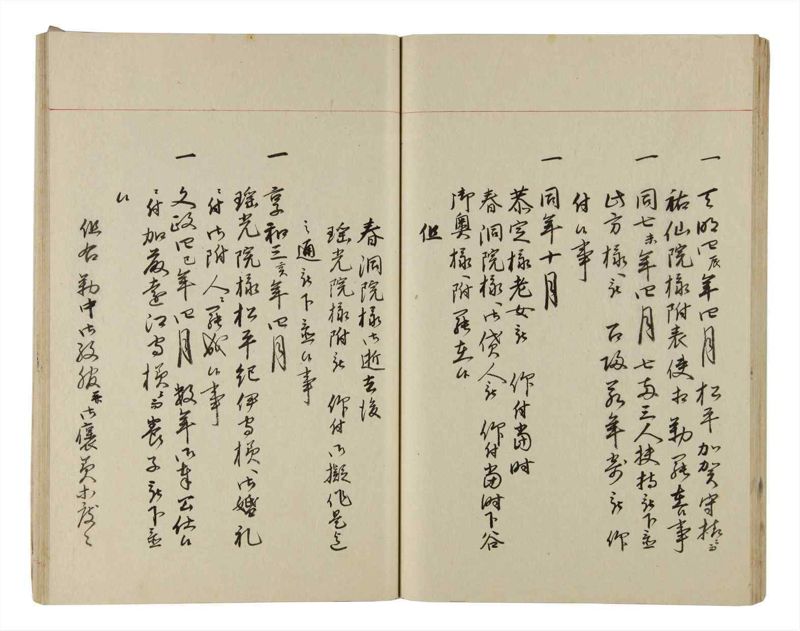 一 天明四辰年四月 松平加賀守様ニ而
祐仙院様附表使相勤罷在事
一 同七未年四月 七両三人扶持被下置
此方様被 召隠
付候事
一 同年十月
恭定様老女被 仰付當時
春洞院様御貸人被 仰付當時下谷
御奥様附罷在候
但
春洞院様御逝去後
瑶光院様附被 仰付御擬作是迄
之通被下置候事
一 享和三亥年四月
瑶光院様松平紀伊守様御婚礼
ニ付御附人ニ罷越候事
一 文政四巳年四月 数年御奉公仕候
ニ付加藤遠江守様ゟ養子被下置
候
但右勤中御紋服并御褒美等度々